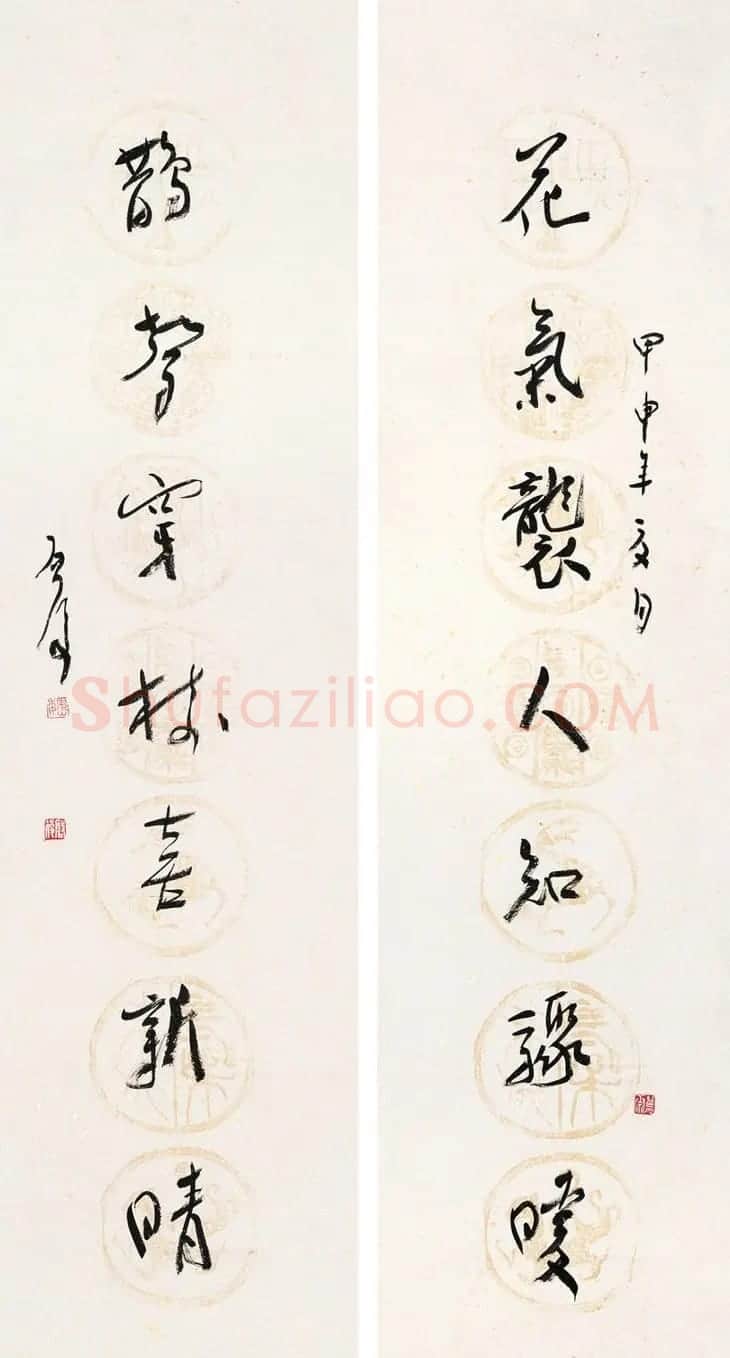 花氣襲人知驟暖
甲申年夏月
鵲聲穿樹喜新晴
Shufaziliao.COM